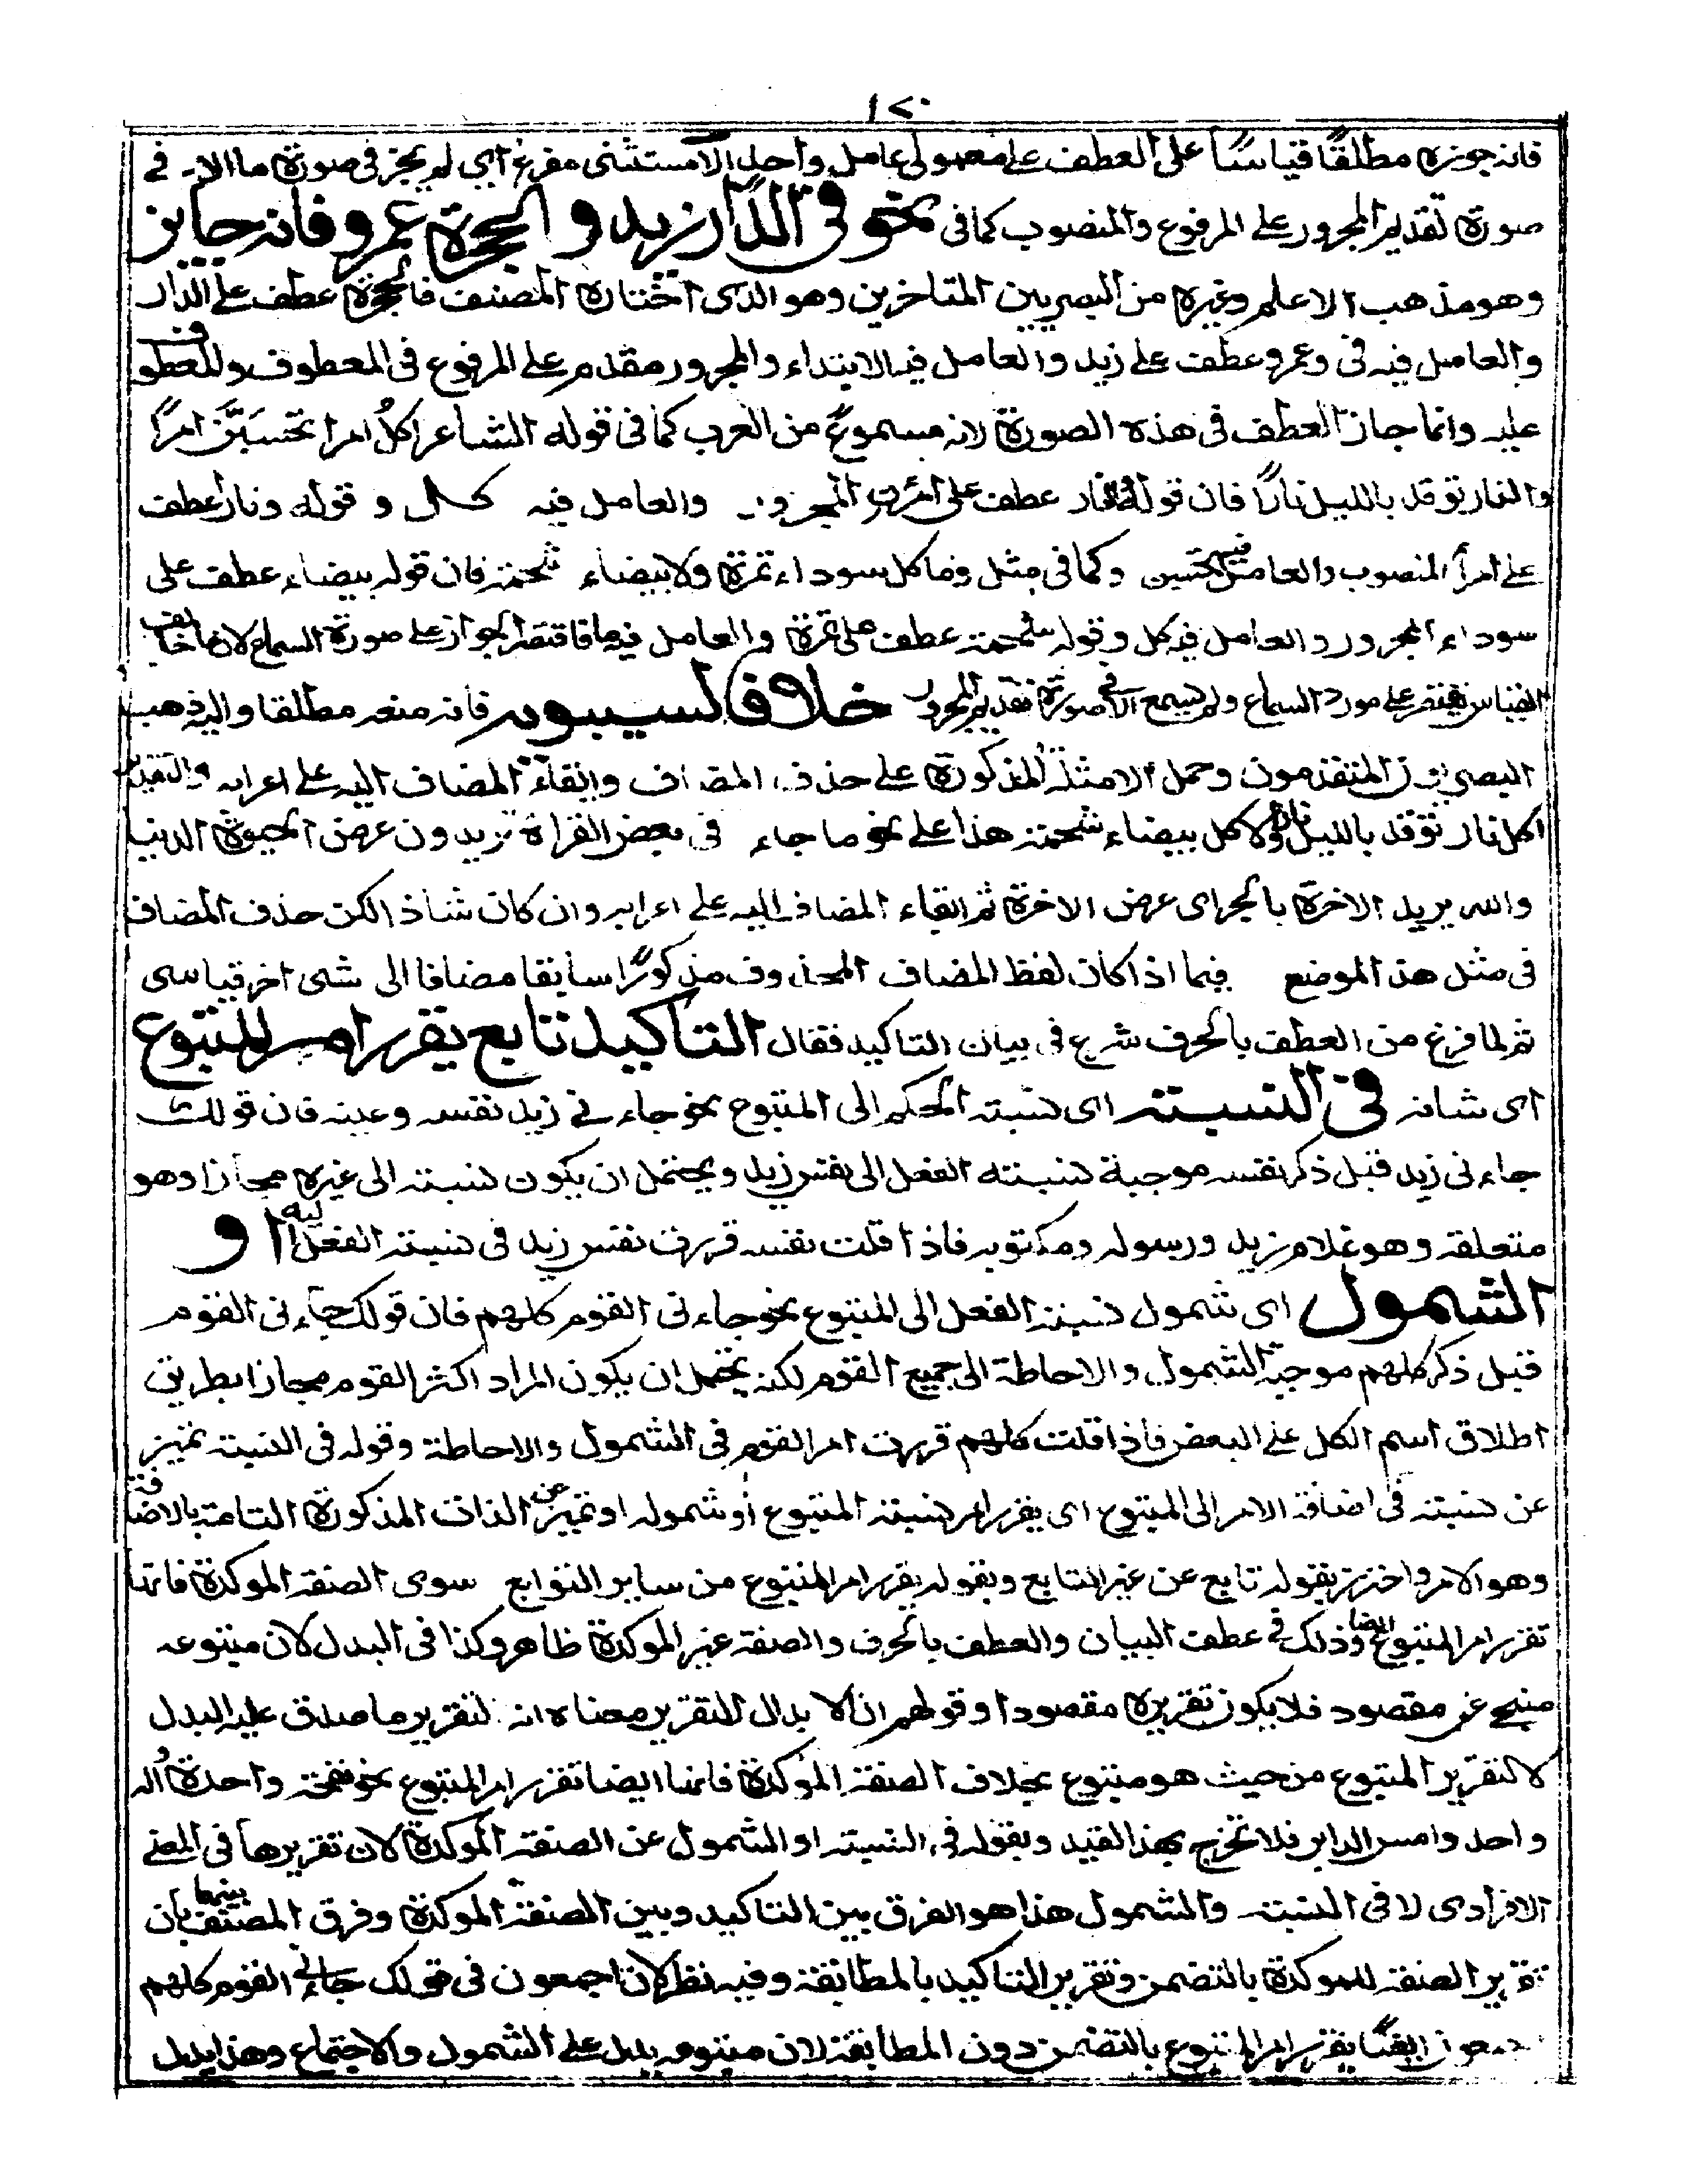 ١٢٠
فانه جوزه مطلقًا قياسًا على العطف على معمولى عامل واحد الا مستثنى مفرغ اى لم يجز فى صورة ما الا فى
صورة تقديم المجرور على المرفوع والمنصوب كما فى نحو فى الدار زيد و الحجرة عمرو فانه جايز
وهو مذهب الاعلم وغيره من البصريين المتاخرين وهو الذى اختاره المصنف فالحجرة عطف على الدار
والعامل فيه فى وعمرو عطف على زيد والعامل فيه الابتداء والمجرور مقدم على المرفوع فى المعطوف والمعطوف
عليه وانما جاز العطف فى هذه الصورة لانه مسموع من العرب كما فى قوله الشاعر اكلُ امرا تحسَبَّنَ امرًا
والنار توقد بالليل نارًا فان قوله نار عطف على امرئ المجرور والعامل فيه كل و قوله ونارًا عطف
على امرأ المنصوب والعامل فيهما تحسبين وكما فى مثل وما كل سوداء تمرة ولا بيضاء شحمة فان قوله بيضاء عطف على
سوداء المجرور والعامل فيه كل وقوله شحمة عطف على تمرة والعامل فيه ما فاقتصر الجواز على صورة السماع لان ما خالف
القياس يقتصر على مورد السماع ولم يسمع الا فى صورة تقديم المجرور خلافا لسيبويه فانه منعه مطلقا واليه ذهب
البصريون المتقدمون وحمل الامثلة المذكورة على حذف المضاف وابقاء المضاف اليه على اعرابه والتقدير
اكل نار توقد بالليل نارا ولا كل بيضاء شحمة هذا على نحو ما جاء فى بعض القراة تريدون عرض الحيوة الدنيا
والله يريد الاخرة بالجر اى عرض الاخرة ثم ابقاء المضاف اليه على اعرابه وان كان شاذا لكن حذف المضاف
فى مثل هذ الموضع فيما اذا كان لفظ المضاف المحذوف مذكورًا سابقا مضافا الى شىء اخر قياسى
ثم لما فرغ من العطف بالحرف شرع فى بيان التاكيد فقال التاكيد تابع يقرر امر المتبوع
اى شانه فى النسبته اى نسبته الحكم الى المتبوع نحو جاء نى زيد نفسه وعينه فان قولك
جاء نى زيد قبل ذكر نفسه موجبة نسبته الفعل الى نفس زيد ويحتمل ان يكون نسبته الى غيره مجازا وهو
متعلقه وهو غلام زيد ورسوله ومكتوبه فاذا قلت نفسه قررت نفس زيد فى نسبته الفعل اليه او
الشمول اى شمول نسبته الفعل الى المتبوع نحو جاء نى القوم كلهم فان قولك جاء نى القوم
قبل ذكر كلهم موجبة الشمول والاحاطة الى جميع القوم لكنه يحتمل ان يكون المراد اكثر القوم مجازا بطريق
اطلاق اسم الكل على البعض فاذا قلت كلهم قررت امر القوم فى الشمول والاحاطة وقوله فى النسبته تميز
عن نسبته فى اضافة الامر الى المتبوع اى يقرر امر نسبته المتبوع او شموله او تميز عن الذات المذكورة التامة بالاضافة
وهو الامر واحترز بقوله تابع عن غير التابع وبقوله يقرر امر المتبوع من ساير التوابع سوى الصفة الموكدة فانها
تقرر امر المتبوع ايضا وذلك فى عطف البيان والعطف بالحرف والصفة غير الموكدة ظاهر وكذا فى البدل لان متبوعه
منحى غير مقصود فلا يكون تقريره مقصودا وقولهم ان لا بدال للتقرير معناه انه لتقرير ما صدق عليه البدل
لا لتقرير المتبوع من حيث هو متبوع بخلاف الصفة الموكدة فانها ايضا تقرر امر المتبوع نحو نفخة واحدة واله
واحد وامس الدابر فلا تخرج بهذا القيد وبقوله فى النسبته او الشمول عن الصفة الموكدة لان تقريرها فى المعنى
الافرادى لا فى النسبته والشمول هذا هو الفرق بين التاكيد وبين الصفة الموكدة وفرق المصنف بينهما بان
تقرير الصفة للموكدة بالتضمن وتقرير التاكيد بالمطابقة وفيه نظر لان اجمعون فى قولك جاءنى القوم كلهم
اجمعون ايضًا يقرر امر المتبوع بالتضمن دون المطابقة لان متبوعه يدل على الشمول والاجتماع وهذا يدل